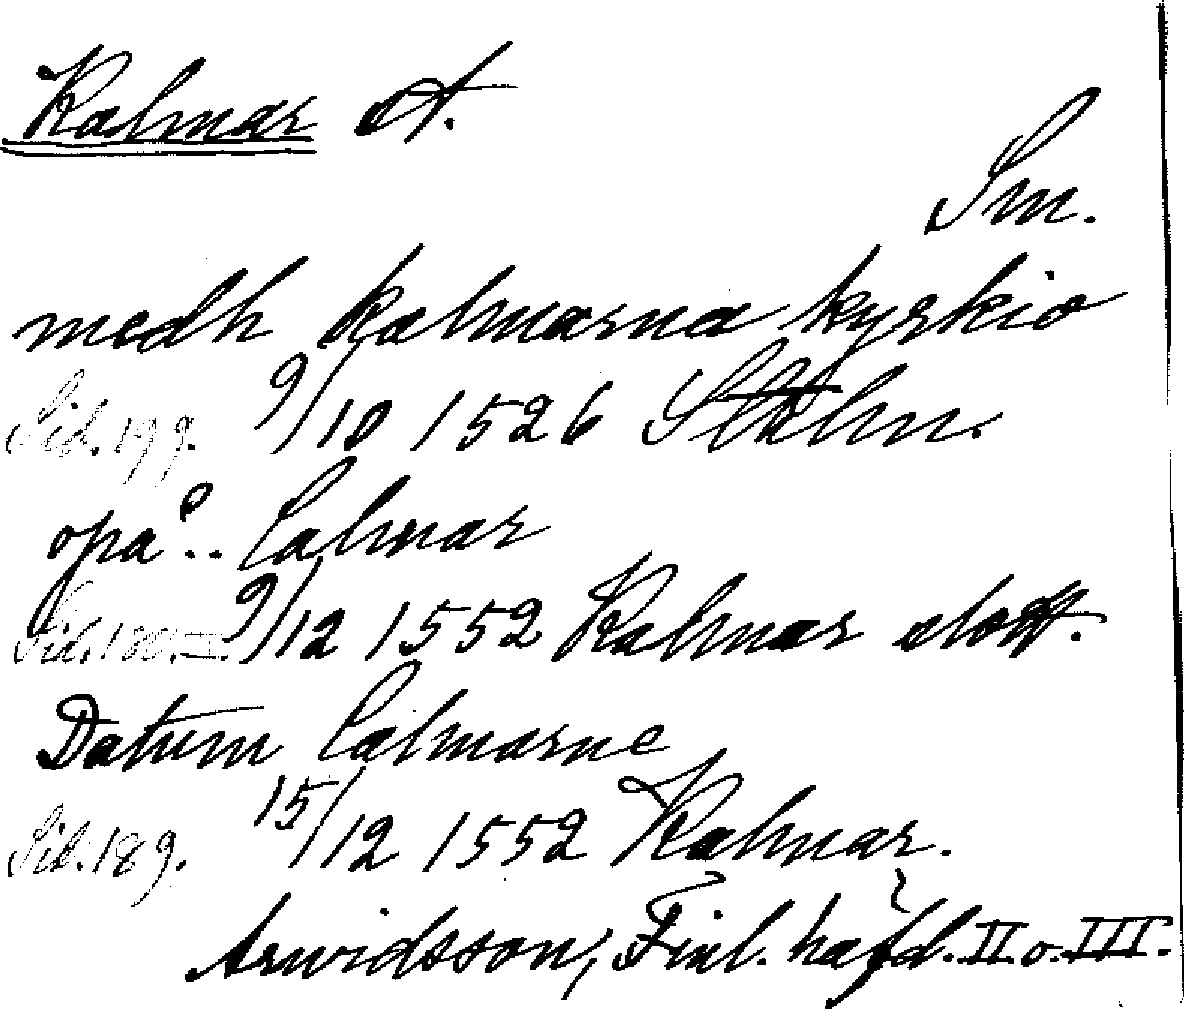 Kalmar st.
Sm.
medh kalmarna kyrkio
Sid. 199. 9/10 1526 Sthlm.
opå.. Calmar
9/12 1552 Kalmar slott.
Datum Calmarne
Sid. 189. 15/12 1552 Kalmar.
Arwidsson, Finl. häfd. II o. III.